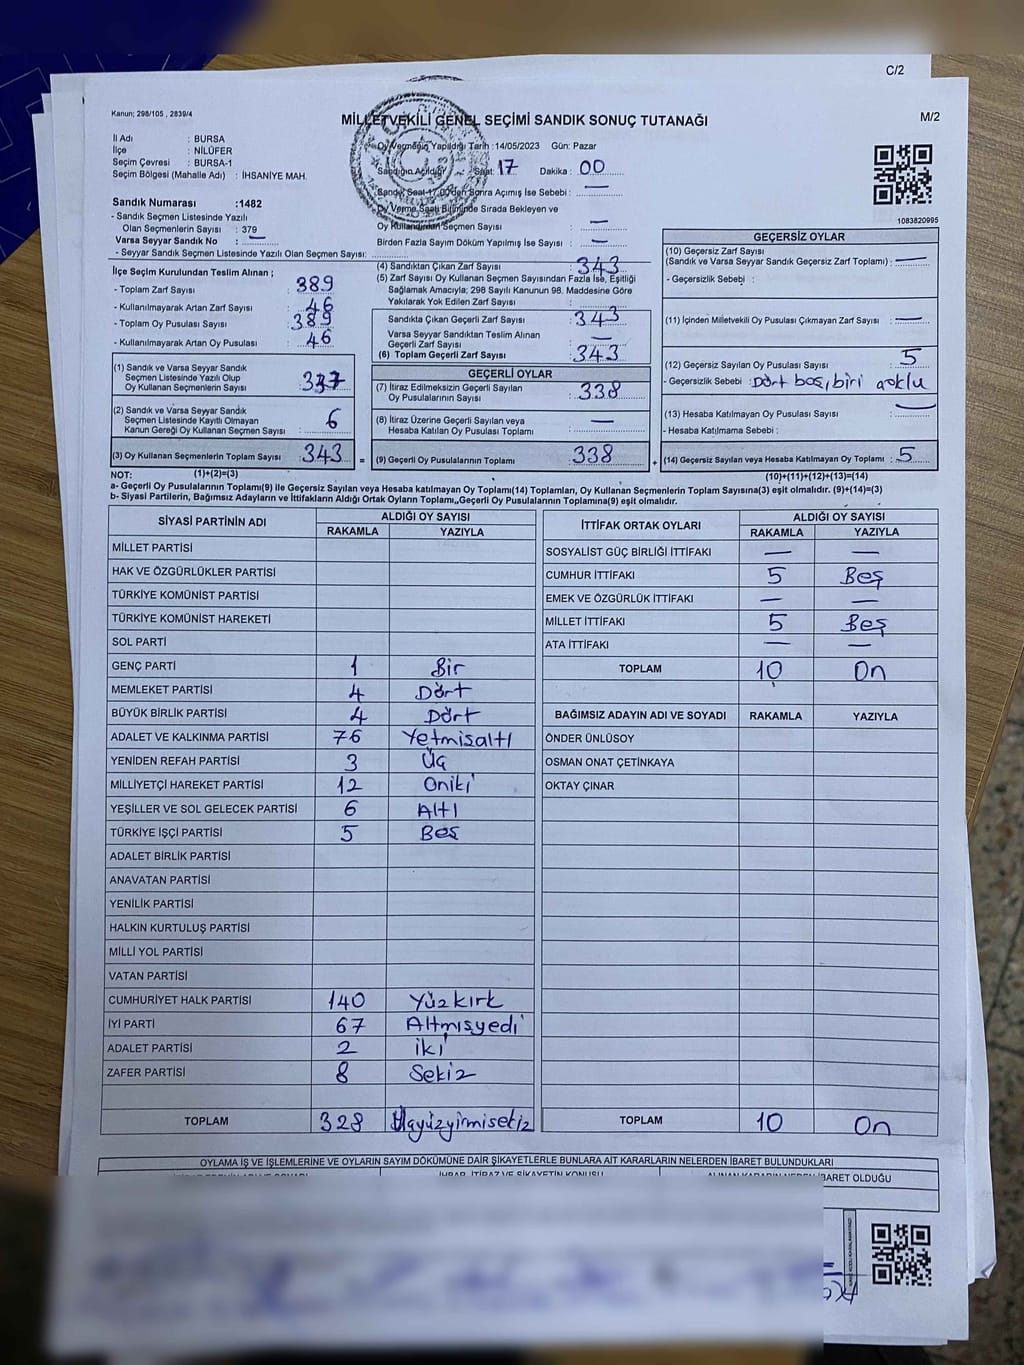 C/2
Kanun; 298/105 , 2839/4
MİLLETVEKİLİ GENEL SEÇİMİ SANDIK SONUÇ TUTANAĞI
M/2
İl Adı : BURSA
İlçe : NİLÜFER
Seçim Çevresi : BURSA-1
Seçim Bölgesi (Mahalle Adı) : İHSANİYE MAH.
Oy Vermenin Yapıldığı Tarih :14/05/2023 Gün: Pazar
Sandığın Açıldığı Saat: 17 Dakika : 00
Sandık Saat 17:00'den Sonra Açımış İse Sebebi : —
Oy Verme Saati Bitiminde Sırada Bekleyen ve
Oy Kullandırılan Seçmen Sayısı : —
Birden Fazla Sayım Döküm Yapılmış İse Sayısı : —
1083820995
Sandık Numarası :1482
- Sandık Seçmen Listesinde Yazılı
Olan Seçmenlerin Sayısı : 379
Varsa Seyyar Sandık No : —
- Seyyar Sandık Seçmen Listesinde Yazılı Olan Seçmen Sayısı:
İlçe Seçim Kurulundan Teslim Alınan ;
- Toplam Zarf Sayısı : 389
- Kullanılmayarak Artan Zarf Sayısı : 46
- Toplam Oy Pusulası Sayısı : 389
- Kullanılmayarak Artan Oy Pusulası : 46
(1) Sandık ve Varsa Seyyar Sandık
Seçmen Listesinde Yazılı Olup
Oy Kullanan Seçmenlerin Sayısı : 337
(2) Sandık ve Varsa Seyyar Sandık
Seçmen Listesinde Kayıtlı Olmayan
Kanun Gereği Oy Kullanan Seçmen Sayısı : 6
(3) Oy Kullanan Seçmenlerin Toplam Sayısı : 343 =
(4) Sandıktan Çıkan Zarf Sayısı : 343
(5) Zarf Sayısı Oy Kullanan Seçmen Sayısından Fazla İse, Eşitliği
Sağlamak Amacıyla; 298 Sayılı Kanunun 98. Maddesine Göre
Yakılarak Yok Edilen Zarf Sayısı :
Sandıkta Çıkan Geçerli Zarf Sayısı : 343
Varsa Seyyar Sandıktan Teslim Alınan
Geçerli Zarf Sayısı : —
(6) Toplam Geçerli Zarf Sayısı : 343
GEÇERLİ OYLAR
(7) İtiraz Edilmeksizin Geçerli Sayılan
Oy Pusulalarının Sayısı : 338
(8) İtiraz Üzerine Geçerli Sayılan veya
Hesaba Katılan Oy Pusulası Toplamı : —
(9) Geçerli Oy Pusulalarının Toplamı : 338 +
GEÇERSİZ OYLAR
(10) Geçersiz Zarf Sayısı
(Sandık ve Varsa Seyyar Sandık Geçersiz Zarf Toplamı) : —
- Geçersizlik Sebebi :
(11) İçinden Milletvekili Oy Pusulası Çıkmayan Zarf Sayısı : —
(12) Geçersiz Sayılan Oy Pusulası Sayısı : 5
- Geçersizlik Sebebi : Dört boş, biri
(13) Hesaba Katılmayan Oy Pusulası Sayısı : —
- Hesaba Katılmama Sebebi :
(14) Geçersiz Sayılan veya Hesaba Katılmayan Oy Toplamı : 5
NOT: (1)+(2)=(3) (10)+(11)+(12)+(13)=(14)
a- Geçerli Oy Pusulalarının Toplamı(9) ile Geçersiz Sayılan veya Hesaba katılmayan Oy Toplamı(14) Toplamları, Oy Kullanan Seçmenlerin Toplam Sayısına(3) eşit olmalıdır. (9)+(14)=(3)
b- Siyasi Partilerin, Bağımsız Adayların ve İttifakların Aldığı Ortak Oyların Toplamı,,Geçerli Oy Pusulalarının Toplamına(9) eşit olmalıdır.
SİYASİ PARTİNİN ADI ALDIĞI OY SAYISI
RAKAMLA YAZIYLA
MİLLET PARTİSİ
HAK VE ÖZGÜRLÜKLER PARTİSİ
TÜRKİYE KOMÜNİST PARTİSİ
TÜRKİYE KOMÜNİST HAREKETİ
SOL PARTİ
GENÇ PARTİ 1 Bir
MEMLEKET PARTİSİ 4 Dört
BÜYÜK BİRLİK PARTİSİ 4 Dört
ADALET VE KALKINMA PARTİSİ 76 Yetmişaltı
YENİDEN REFAH PARTİSİ 3 Üç
MİLLİYETÇİ HAREKET PARTİSİ 12 Oniki
YEŞİLLER VE SOL GELECEK PARTİSİ 6 Altı
TÜRKİYE İŞÇİ PARTİSİ 5 Beş
ADALET BİRLİK PARTİSİ
ANAVATAN PARTİSİ
YENİLİK PARTİSİ
HALKIN KURTULUŞ PARTİSİ
MİLLİ YOL PARTİSİ
VATAN PARTİSİ
CUMHURİYET HALK PARTİSİ 140 Yüzkırk
İYİ PARTİ 67 Altmışyedi
ADALET PARTİSİ 2 iki
ZAFER PARTİSİ 8 Sekiz
TOPLAM 328 Üçyüzyirmisekiz
İTTİFAK ORTAK OYLARI ALDIĞI OY SAYISI
RAKAMLA YAZIYLA
SOSYALİST GÜÇ BİRLİĞİ İTTİFAKI — —
CUMHUR İTTİFAKI 5 Beş
EMEK VE ÖZGÜRLÜK İTTİFAKI — —
MİLLET İTTİFAKI 5 Beş
ATA İTTİFAKI — —
TOPLAM 10 On
BAĞIMSIZ ADAYIN ADI VE SOYADI RAKAMLA YAZIYLA
ÖNDER ÜNLÜSOY
OSMAN ONAT ÇETİNKAYA
OKTAY ÇINAR
TOPLAM 10 On
OYLAMA İŞ VE İŞLEMLERİNE VE OYLARIN SAYIM DÖKÜMÜNE DAİR ŞİKAYETLERLE BUNLARA AİT KARARLARIN NELERDEN İBARET BULUNDUKLARI
İHBAR, İTİRAZ VE ŞİKAYETİN KONUSU
ALINAN KARARIN NEDEN İBARET OLDUĞU